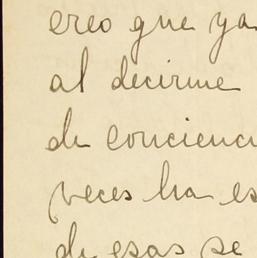 creo que ya
al decirme
de concienci
veces ha es
de esas se